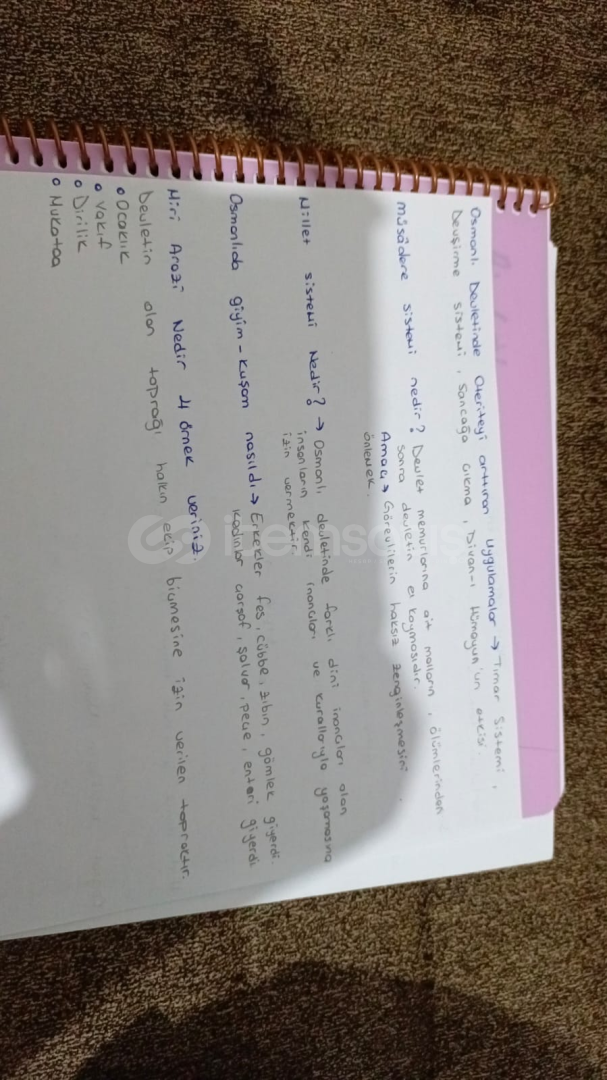 Osmanlı Devletinde Oteriteyi arttıran uygulamalar → Tımar Sistemi,
Devşirme sistemi, Sancağa çıkma, Divan-ı Hümayun'un etkisi.
müsadere sistemi nedir? Devlet memurlarına ait malların, ölümlerinden
sonra devletin el koymasıdır.
Amaç → Görevlilerin haksız zenginleşmesini
önlemek.
Millet sistemi Nedir? → Osmanlı devletinde farklı dini inançları olan
insanların kendi inançları ve kurallarıyla yaşamasına
izin vermektir.
Osmanlıda giyim-kuşam nasıldı → Erkekler fes, cübbe, zıbın, gömlek giyerdi.
Kadınlar çarşaf, şalvar, peçe, entari giyerdi.
Miri Arazi Nedir 4 örnek veriniz.
Devletin olan toprağı halkın ekip biçmesine izin verilen topraktır.
• Ocaklık
• Vakıf
• Dirilik
• Mukataa
itemsatış